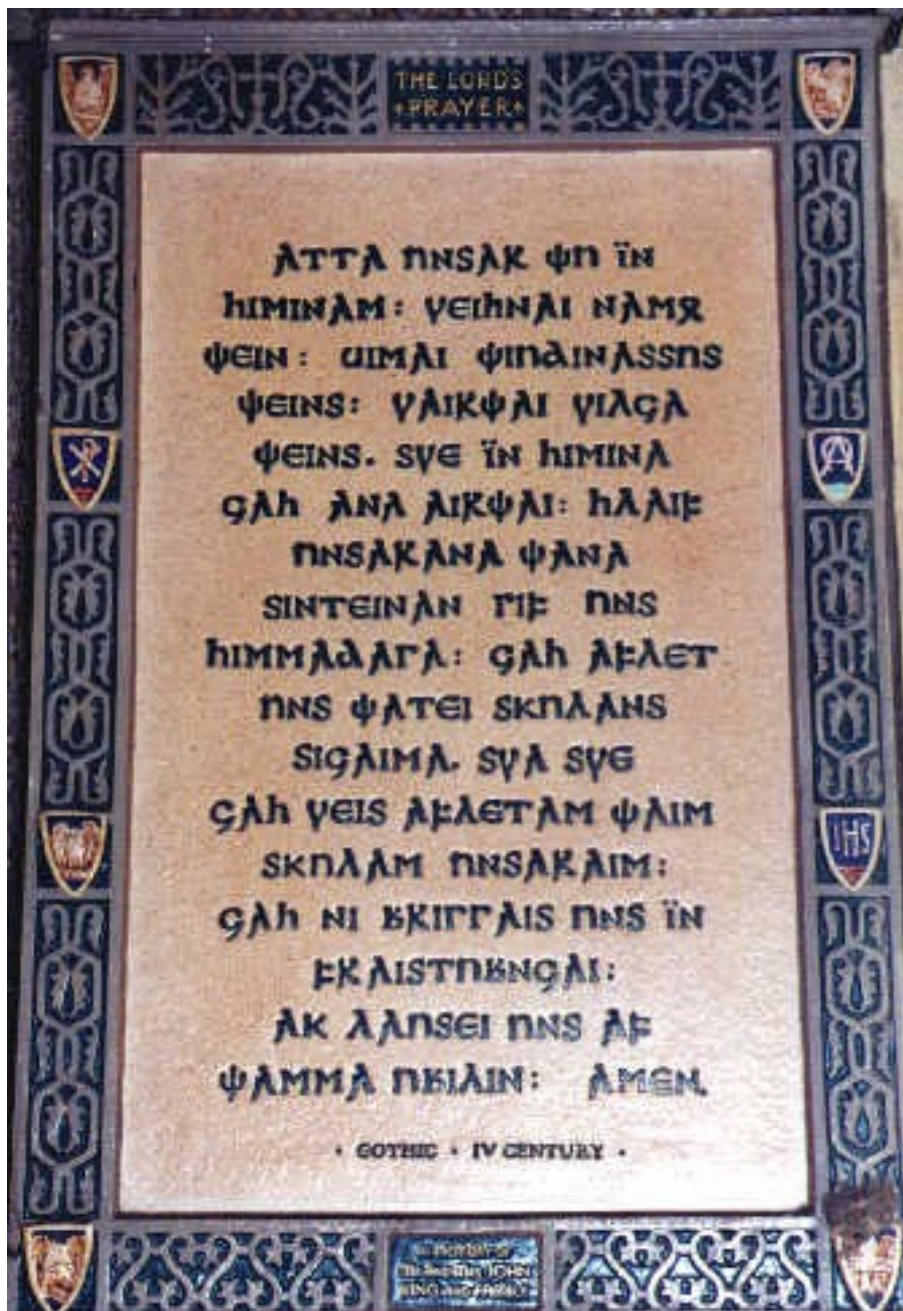 THE LORD'S
+PRAYER+
𐌰𐍄𐍄𐌰 𐌿𐌽𐍃𐌰𐍂 𐌸𐌿 𐌹̈𐌽
𐌷𐌹𐌼𐌹𐌽𐌰𐌼: 𐍅𐌴𐌹𐌷𐌽𐌰𐌹 𐌽𐌰𐌼𐍉
𐌸𐌴𐌹𐌽: 𐌵𐌹𐌼𐌰𐌹 𐌸𐌹𐌿𐌳𐌹𐌽𐌰𐍃𐍃𐌿𐍃
𐌸𐌴𐌹𐌽𐍃: 𐍅𐌰𐌹𐍂𐌸𐌰𐌹 𐍅𐌹𐌻𐌾𐌰
𐌸𐌴𐌹𐌽𐍃. 𐍃𐍅𐌴 𐌹̈𐌽 𐌷𐌹𐌼𐌹𐌽𐌰
𐌾𐌰𐌷 𐌰𐌽𐌰 𐌰𐌹𐍂𐌸𐌰𐌹: 𐌷𐌻𐌰𐌹𐍆
𐌿𐌽𐍃𐌰𐍂𐌰𐌽𐌰 𐌸𐌰𐌽𐌰
𐍃𐌹𐌽𐍄𐌴𐌹𐌽𐌰𐌽 𐌲𐌹𐍆 𐌿𐌽𐍃
𐌷𐌹𐌼𐌼𐌰𐌳𐌰𐌲𐌰: 𐌾𐌰𐌷 𐌰𐍆𐌻𐌴𐍄
𐌿𐌽𐍃 𐌸𐌰𐍄𐌴𐌹 𐍃𐌺𐌿𐌻𐌰𐌽𐍃
𐍃𐌹𐌾𐌰𐌹𐌼𐌰. 𐍃𐍅𐌰 𐍃𐍅𐌴
𐌾𐌰𐌷 𐍅𐌴𐌹𐍃 𐌰𐍆𐌻𐌴𐍄𐌰𐌼 𐌸𐌰𐌹𐌼
𐍃𐌺𐌿𐌻𐌰𐌼 𐌿𐌽𐍃𐌰𐍂𐌰𐌹𐌼:
𐌾𐌰𐌷 𐌽𐌹 𐌱𐍂𐌹𐌲𐌲𐌰𐌹𐍃 𐌿𐌽𐍃 𐌹̈𐌽
𐍆𐍂𐌰𐌹𐍃𐍄𐌿𐌱𐌽𐌾𐌰𐌹:
𐌰𐌺 𐌻𐌰𐌿𐍃𐌴𐌹 𐌿𐌽𐍃 𐌰𐍆
𐌸𐌰𐌼𐌼𐌰 𐌿𐌱𐌹𐌻𐌹𐌽: 𐌰𐌼𐌴𐌽.
IHS
• GOTHIC • IV CENTURY •
IN MEMORY OF
JOHN
KING AND FAMILY